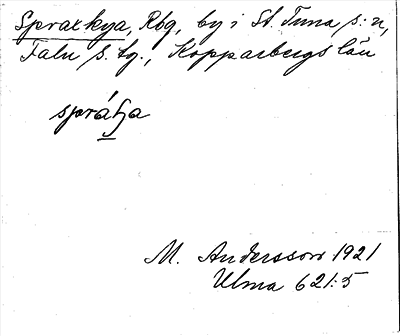 Spraxkya, Rbg, by i St. Tuna s:n,
Falu s. tg., Kopparbergs län
sprátja
M. Andersson 1921
Ulma 621:5